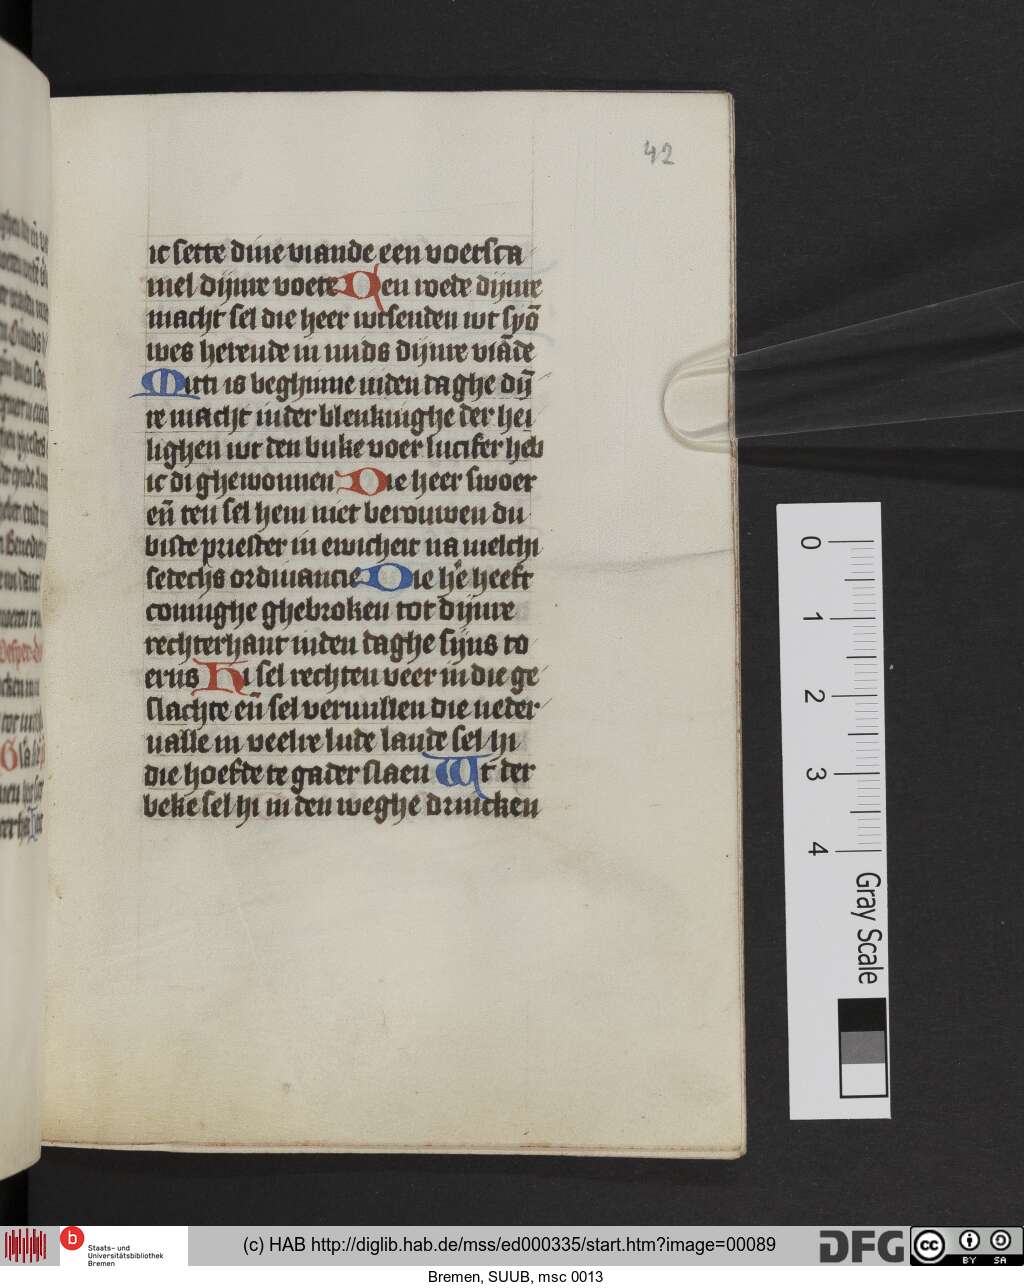 42
ic sette dine viande een voetsca
mel dijnre voete Den roede dijnre
macht sel die heer wtsenden wt syō
wes herende in mids dijnre viāde
Mitti is beghinne inden daghe dȳ
re macht inder blenkinghe der hei
lighen wt den buke voer lucifer heb
ic di ghewonnen Die heer swoer
eñ ten sel hem niet berouwen du
biste priester in ewicheit na melchi
sedechs ordinancie Die h'e heeft
coninghe ghebroken tot dijnre
rechterhant inden daghe sijns to
erns Hi sel rechten veer in die ge
slachte eñ sel vervullen die neder
valle in veelre lude lande sel hi
die hoefde te gader slaen Wt der
beke sel hi in den weghe drincken
0
1
2
3
4
Gray Scale
b
Staats- und
Universitätsbibliothek
Bremen
(c) HAB http://diglib.hab.de/mss/ed000335/start.htm?image=00089
DFG
cc
BY SA
Bremen, SUUB, msc 0013